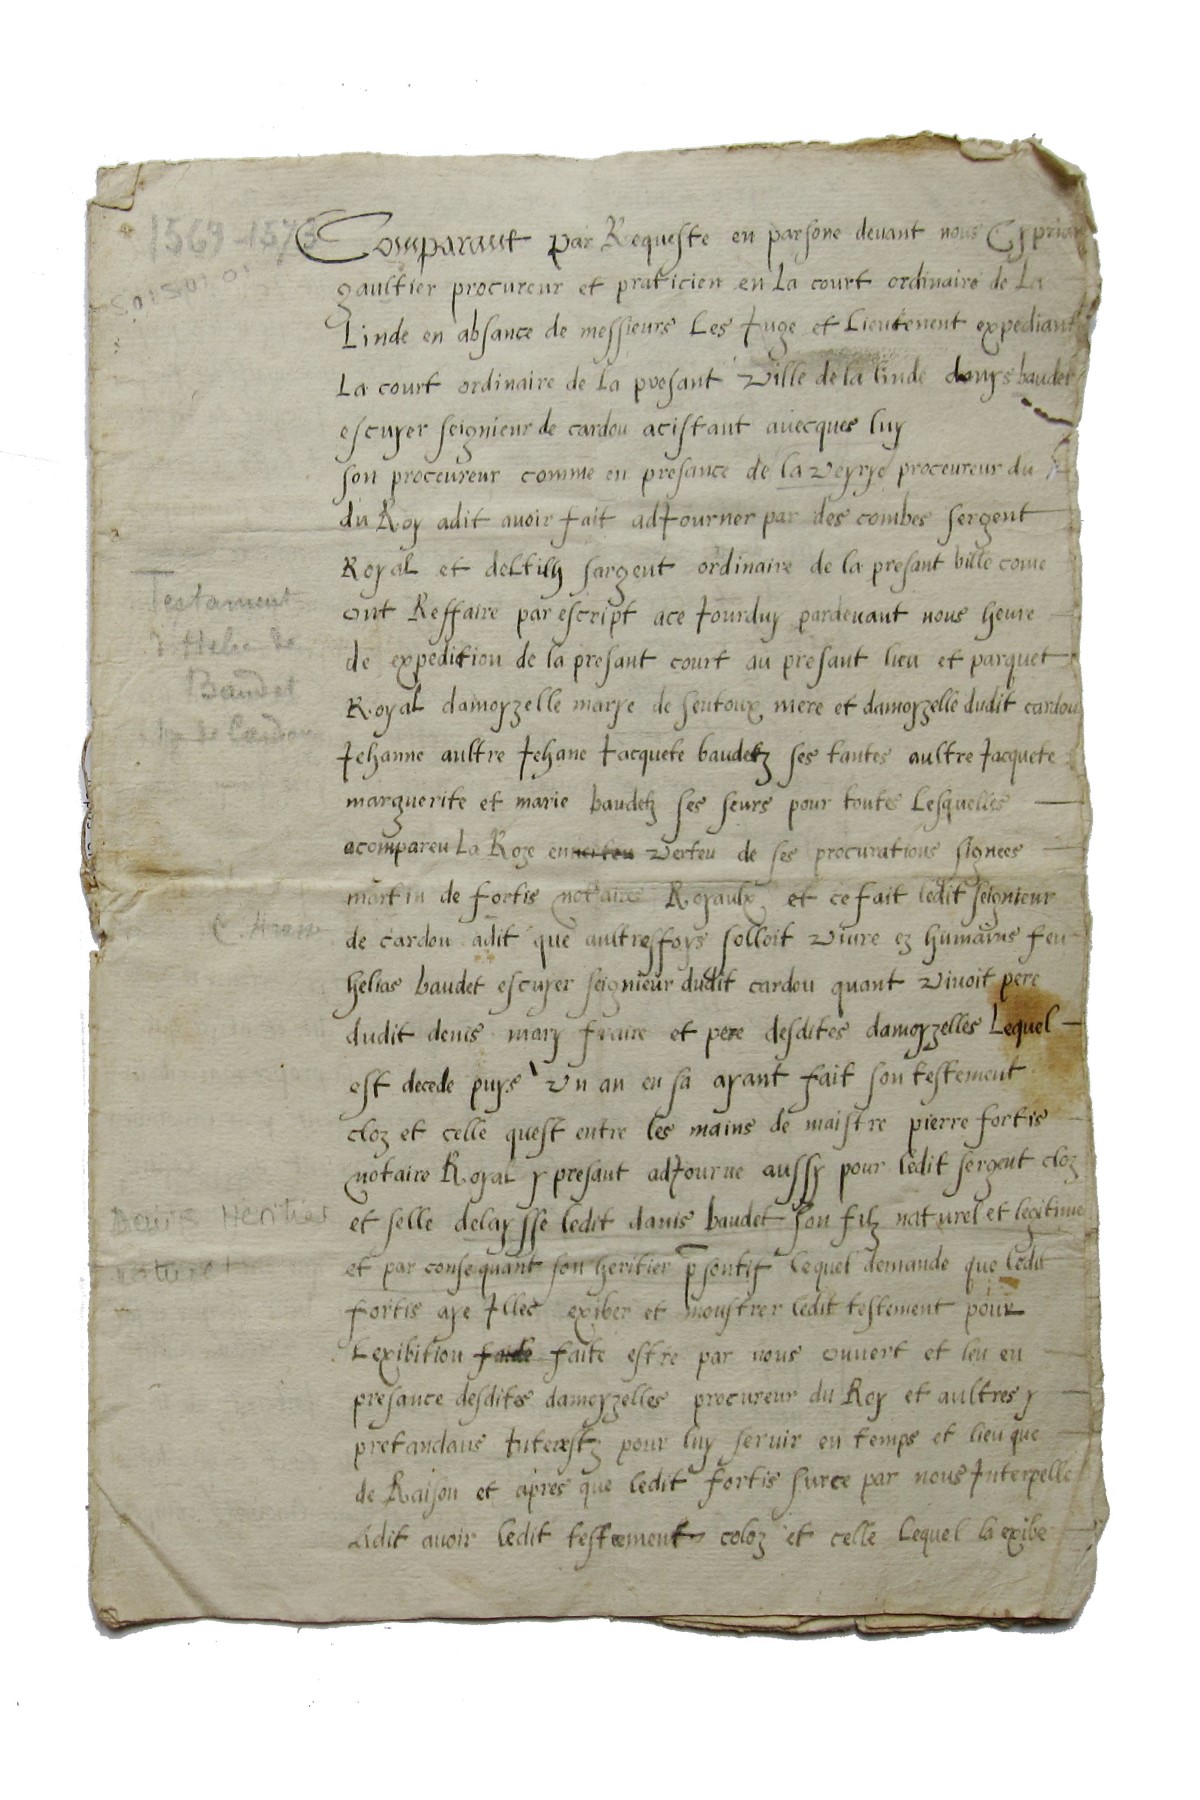 1569-1573
Comparant par Requeste en parsone devant nous Cyprian
gaultier procureur et praticien en La court ordinaire de La
Linde en absance de messieurs Les Juge et Lieutenent expediant
La court ordinaire de La presant ville de la linde denys baudet
escuyer seignieur de cardou acistant avecques luy
son procureur comme en presance de la veyrye procureur du
du Roy adit avoir fait adJourner par des combes sergent
Royal et deltilh sargent ordinaire de la presant ville come
ont Reffaire par escript ace Jourduy pardevant nous heure
de expedition de la presant court au presant lieu et parquet
Royal damoyzelle marye de sentoux mere et damoyzelle dudit cardou
Jehanne aultre Jehane Jacquete baudetz ses tantes aultre Jacquete
marguerite et marie baudetz ses seurs pour toutes Lesquelles
acompareu La Roze en verteu de ses procurations signees
martin de fortis notaire Royaulx et ce fait ledit seignieur
de cardou adit que aultreffoys solloit vivre ez humains feu
helias baudet escuyer seignieur dudit cardou quant vivoit pere
dudit denis mary fraire et pere desdites damoyzelles Lequel
est decede puys un an en sa ayant fait son testement
cloz et celle quest entre les mains de maistre pierre fortis
notaire Royal y presant adJourne aussy pour ledit sergent cloz
et selle delaysse ledit danis baudet son filz naturel et legitime
et par consequant son heritier psontif lequel demande que ledit
fortis aye Illec exiber et monstrer ledit testement pour
Lexibition faite estre par nous ouvert et leu en
presance desdites damoyzelles procureur du Roy et aultres y
pretandans Interestz pour luy servir en temps et lieu que
de Raison et apres que ledit fortis surce par nous Interpelle
Adit avoir ledit testement coloz et celle Lequel la exibe
Testament
d'Helie de
Baudet
Sgr de Cardou
Denis Héritier
naturel